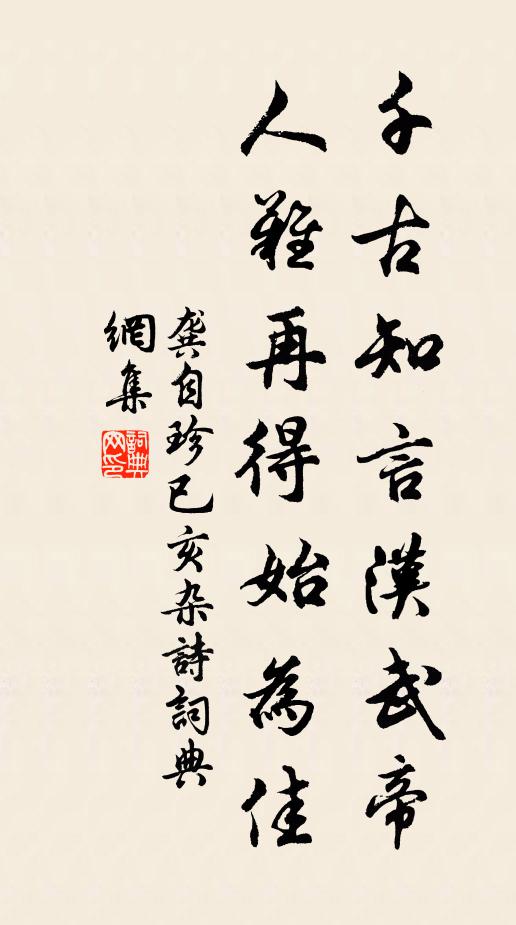 千古知言漢武帝
人難再得始為佳
龔自珍已亥杂詩詞典
網集
詞典
网印